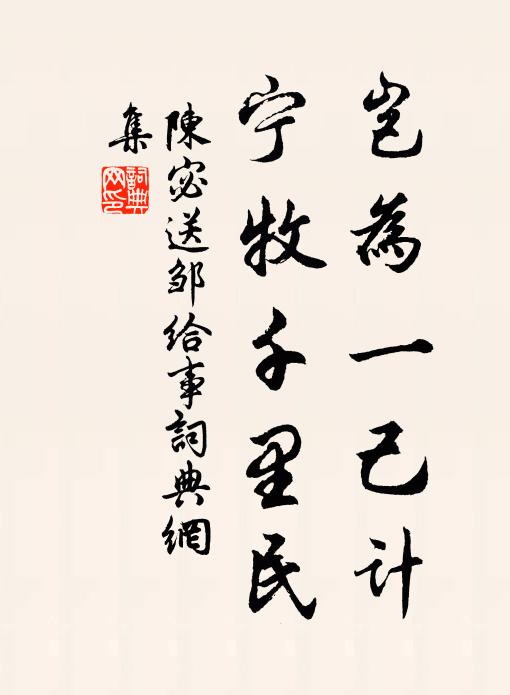 岂為一己计
宁牧千里民
陳宓送邹给事詞典網
集
詞典網印